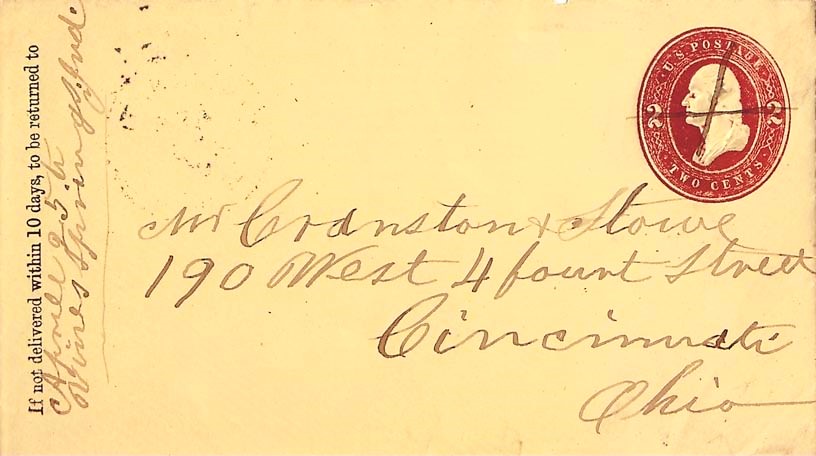 If not delivered within 10 days, to be returned to
Apriel 25.th
Vines Springs Ind.
U.S POSTAGE
2 2
TWO CENTS
Mr Cranston & Stowe
190 West 4 fourt Street
Cincinnati
Ohio